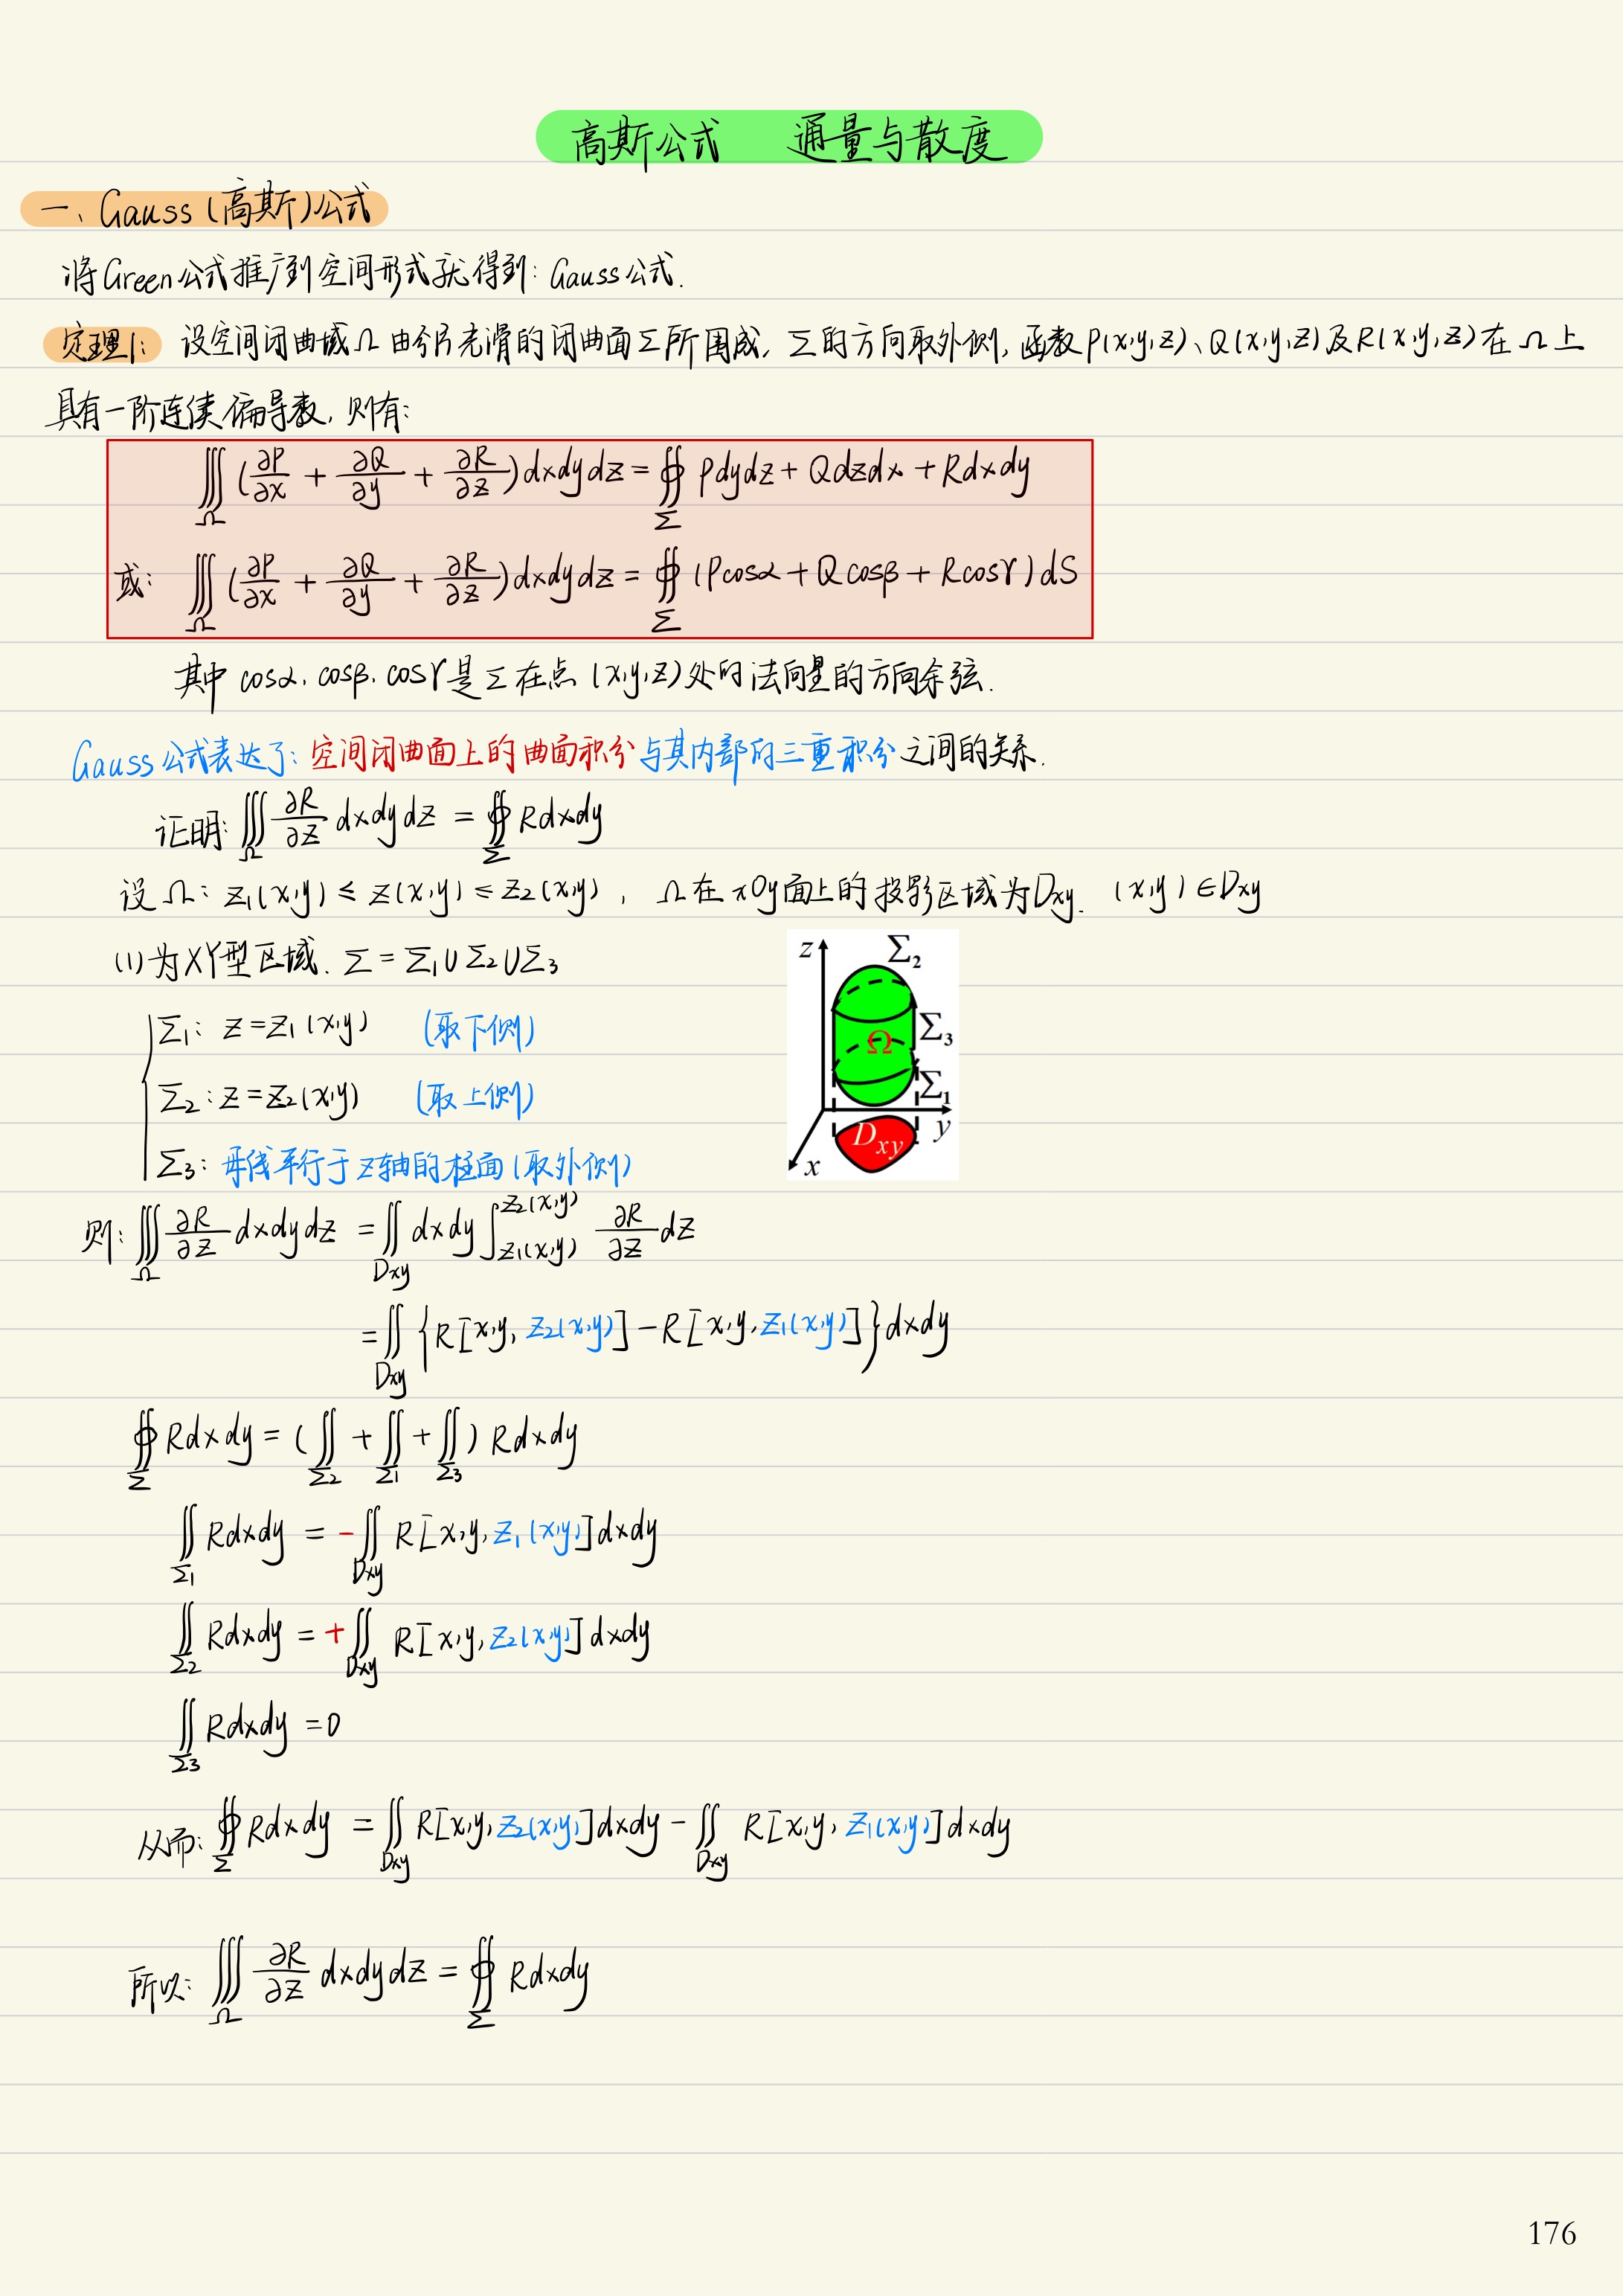 高斯公式 通量与散度
一、Gauss(高斯)公式
将Green公式推广到空间形式就得到: Gauss公式.
定理1: 设空间闭曲域Ω由分片光滑的闭曲面Σ所围成, Σ的方向取外侧, 函数P(x,y,z)、Q(x,y,z)及R(x,y,z)在Ω上
具有一阶连续偏导数, 则有:
∭_Ω (∂P/∂x + ∂Q/∂y + ∂R/∂z)dxdydz = ∯_Σ Pdydz + Qdzdx + Rdxdy
或: ∭_Ω (∂P/∂x + ∂Q/∂y + ∂R/∂z)dxdydz = ∯_Σ (Pcosα + Qcosβ + Rcosγ)dS
其中 cosα, cosβ, cosγ是Σ在点(x,y,z)处的法向量的方向余弦.
Gauss公式表达了: 空间闭曲面上的曲面积分与其内部的三重积分之间的关系.
证明: ∭_Ω ∂R/∂z dxdydz = ∯_Σ Rdxdy
设Ω: z₁(x,y) ≤ z(x,y) ≤ z₂(x,y), Ω在xOy面上的投影区域为Dxy. (x,y)∈Dxy
(1)为XY型区域. Σ = Σ₁∪Σ₂∪Σ₃
Σ₁: z = z₁(x,y) (取下侧)
Σ₂: z = z₂(x,y) (取上侧)
Σ₃: 母线平行于z轴的柱面(取外侧)
z
Σ₂
Ω
Σ₃
Σ₁
y
Dxy
x
则: ∭_Ω ∂R/∂z dxdydz = ∬_Dxy dxdy ∫_{z₁(x,y)}^{z₂(x,y)} ∂R/∂z dz
= ∬_Dxy {R[x,y,z₂(x,y)] − R[x,y,z₁(x,y)]}dxdy
∯_Σ Rdxdy = (∬_Σ₂ + ∬_Σ₁ + ∬_Σ₃) Rdxdy
∬_Σ₁ Rdxdy = −∬_Dxy R[x,y,z₁(x,y)]dxdy
∬_Σ₂ Rdxdy = +∬_Dxy R[x,y,z₂(x,y)]dxdy
∬_Σ₃ Rdxdy = 0
从而: ∯_Σ Rdxdy = ∬_Dxy R[x,y,z₂(x,y)]dxdy − ∬_Dxy R[x,y,z₁(x,y)]dxdy
所以: ∭_Ω ∂R/∂z dxdydz = ∯_Σ Rdxdy
176